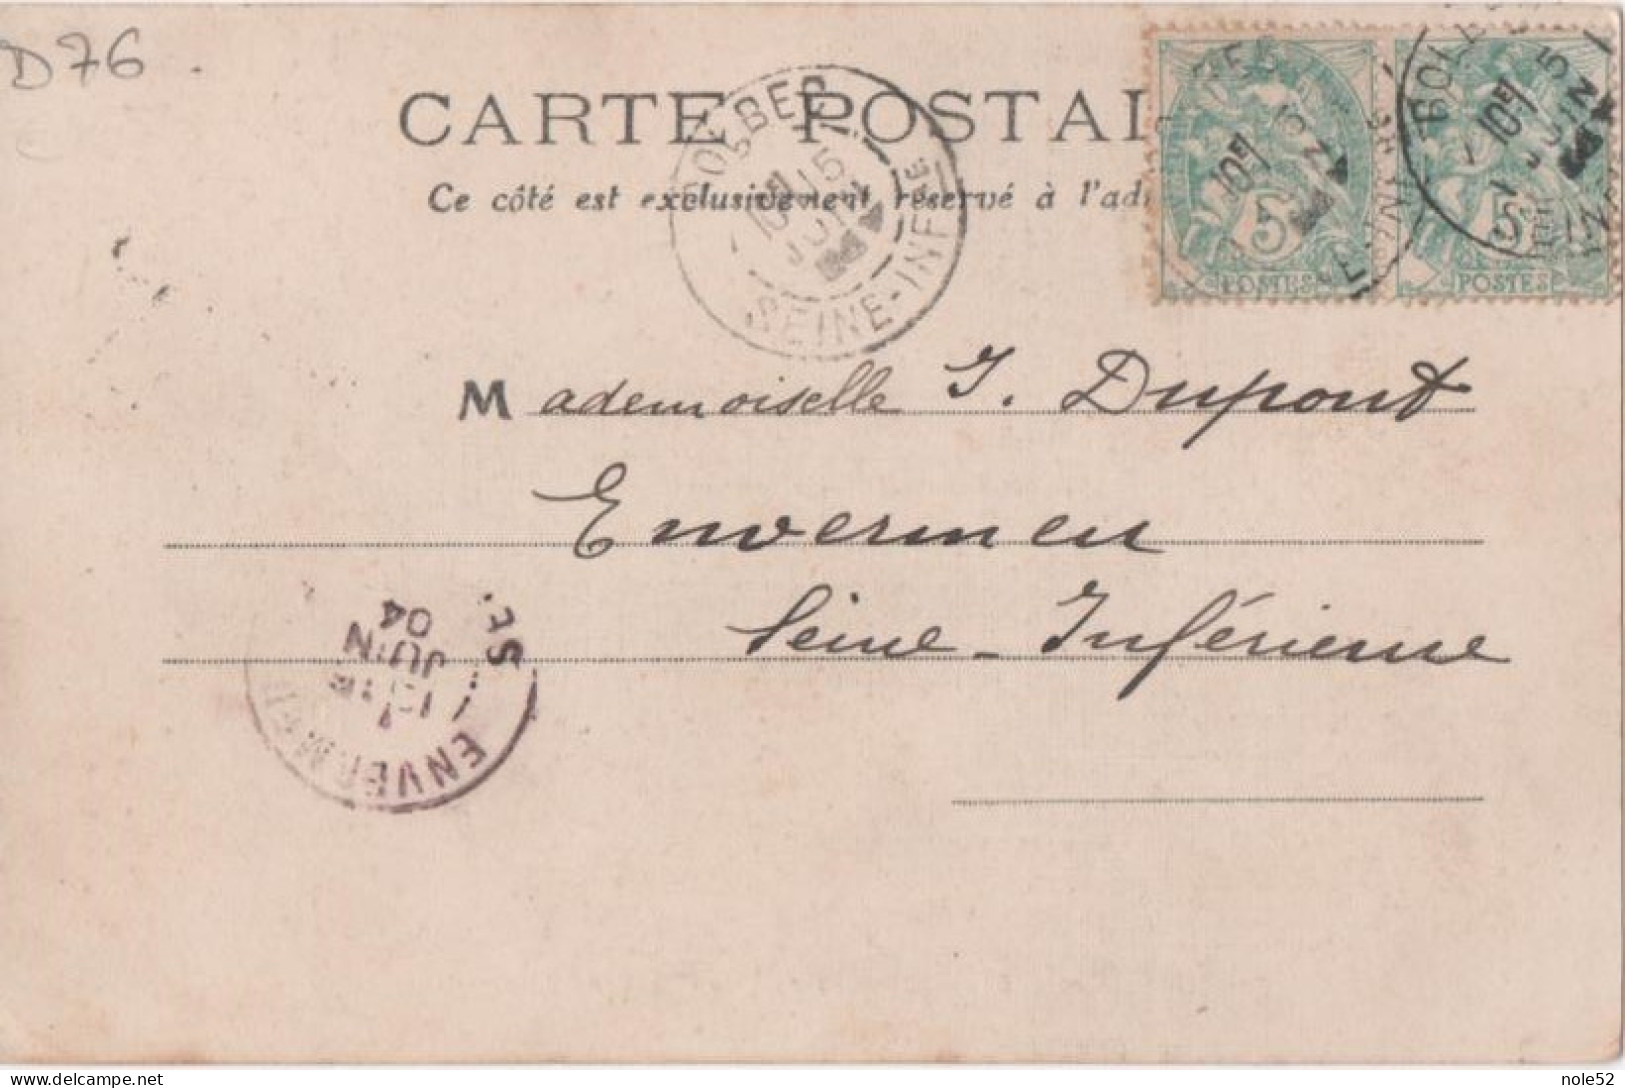 D76
CARTE POSTAL
Ce côté est exclusivement réservé à l'ad
BOLBEC
10E
15
JUIN
SEINE-INF RE
5
POSTES
5
POSTES
Mademoiselle J. Dupont
Envermeu
Seine-Inférieure
ENVERMEU
JUIN
04
nole52